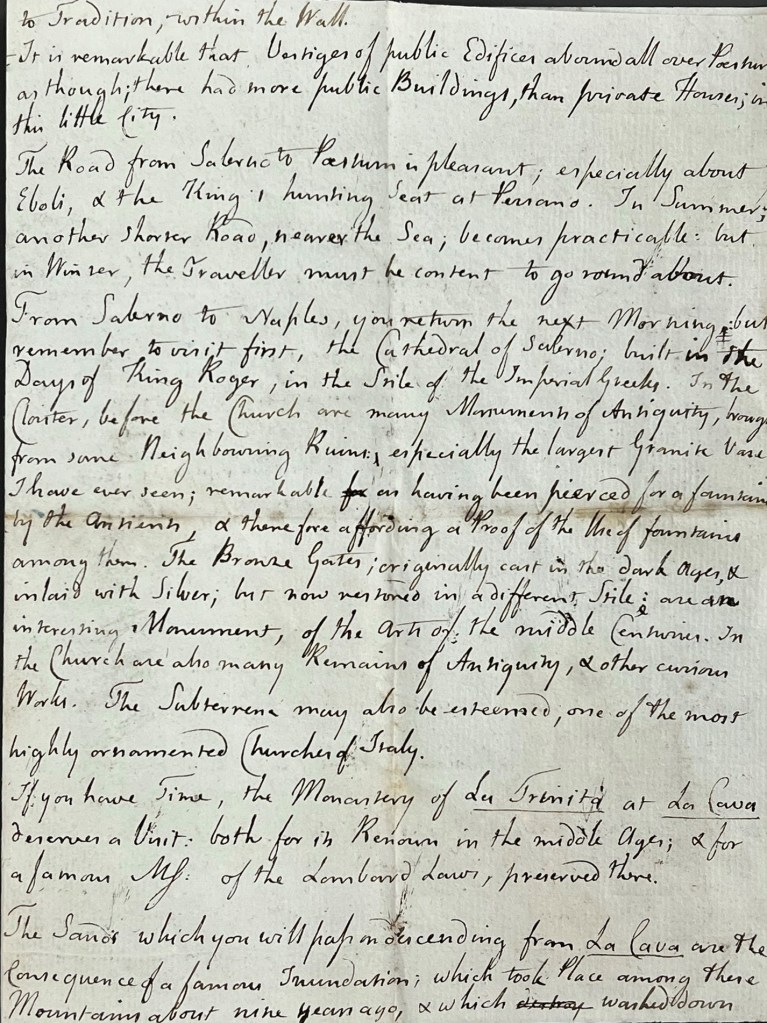 to Tradition, within the Wall.
It is remarkable that Vestiges of public Edifices abound all over Pæstum
as though; there had more public Buildings, than private Houses; in
this little City.
The Road from Salerno to Pæstum is pleasant; especially about
Eboli, & the King's hunting Seat at Persano. In Summer;
another shorter Road, nearer the Sea; becomes practicable: but
in Winter, the Traveller must be content to go round about.
From Salerno to Naples, you return the next Morning: but
remember to visit first, the Cathedral of Salerno; built in the
Days of King Roger, in the Stile of the Imperial Greeks. In the
Cloister, before the Church are many Monuments of Antiquity, broug
from some Neighbouring Ruins; especially the largest Granite Vase
I have ever seen; remarkable for as having been pierced for a fountain
by the Antients, & therefore affording a Proof of the Use of fountains
among them. The Bronze Gates; originally cast in the dark Ages, &
inlaid with Silver; but now restored in a different Stile; are an
interesting Monument, of the Arts of the middle Centuries. In
the Church are also many Remains of Antiquity, & other curious
Works. The Subterrene may also be esteemed, one of the most
highly ornamented Churches of Italy.
If you have Time, the Monastery of La Trinità at La Cava
deserves a Visit: both for its Renown in the middle Ages; & for
a famous MS: of the Lombard Laws, preserved there.
The Sands which you will pass on descending from La Cava are the
Consequence of a famous Inundation; which took Place among these
Mountains about nine years ago, & which destroy washed down